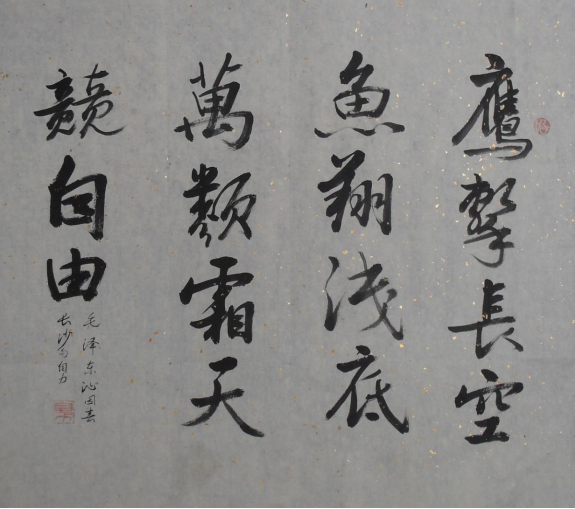 鷹擊長空
魚翔浅底
萬類霜天
競自由
毛泽东沁园春
长沙句自力